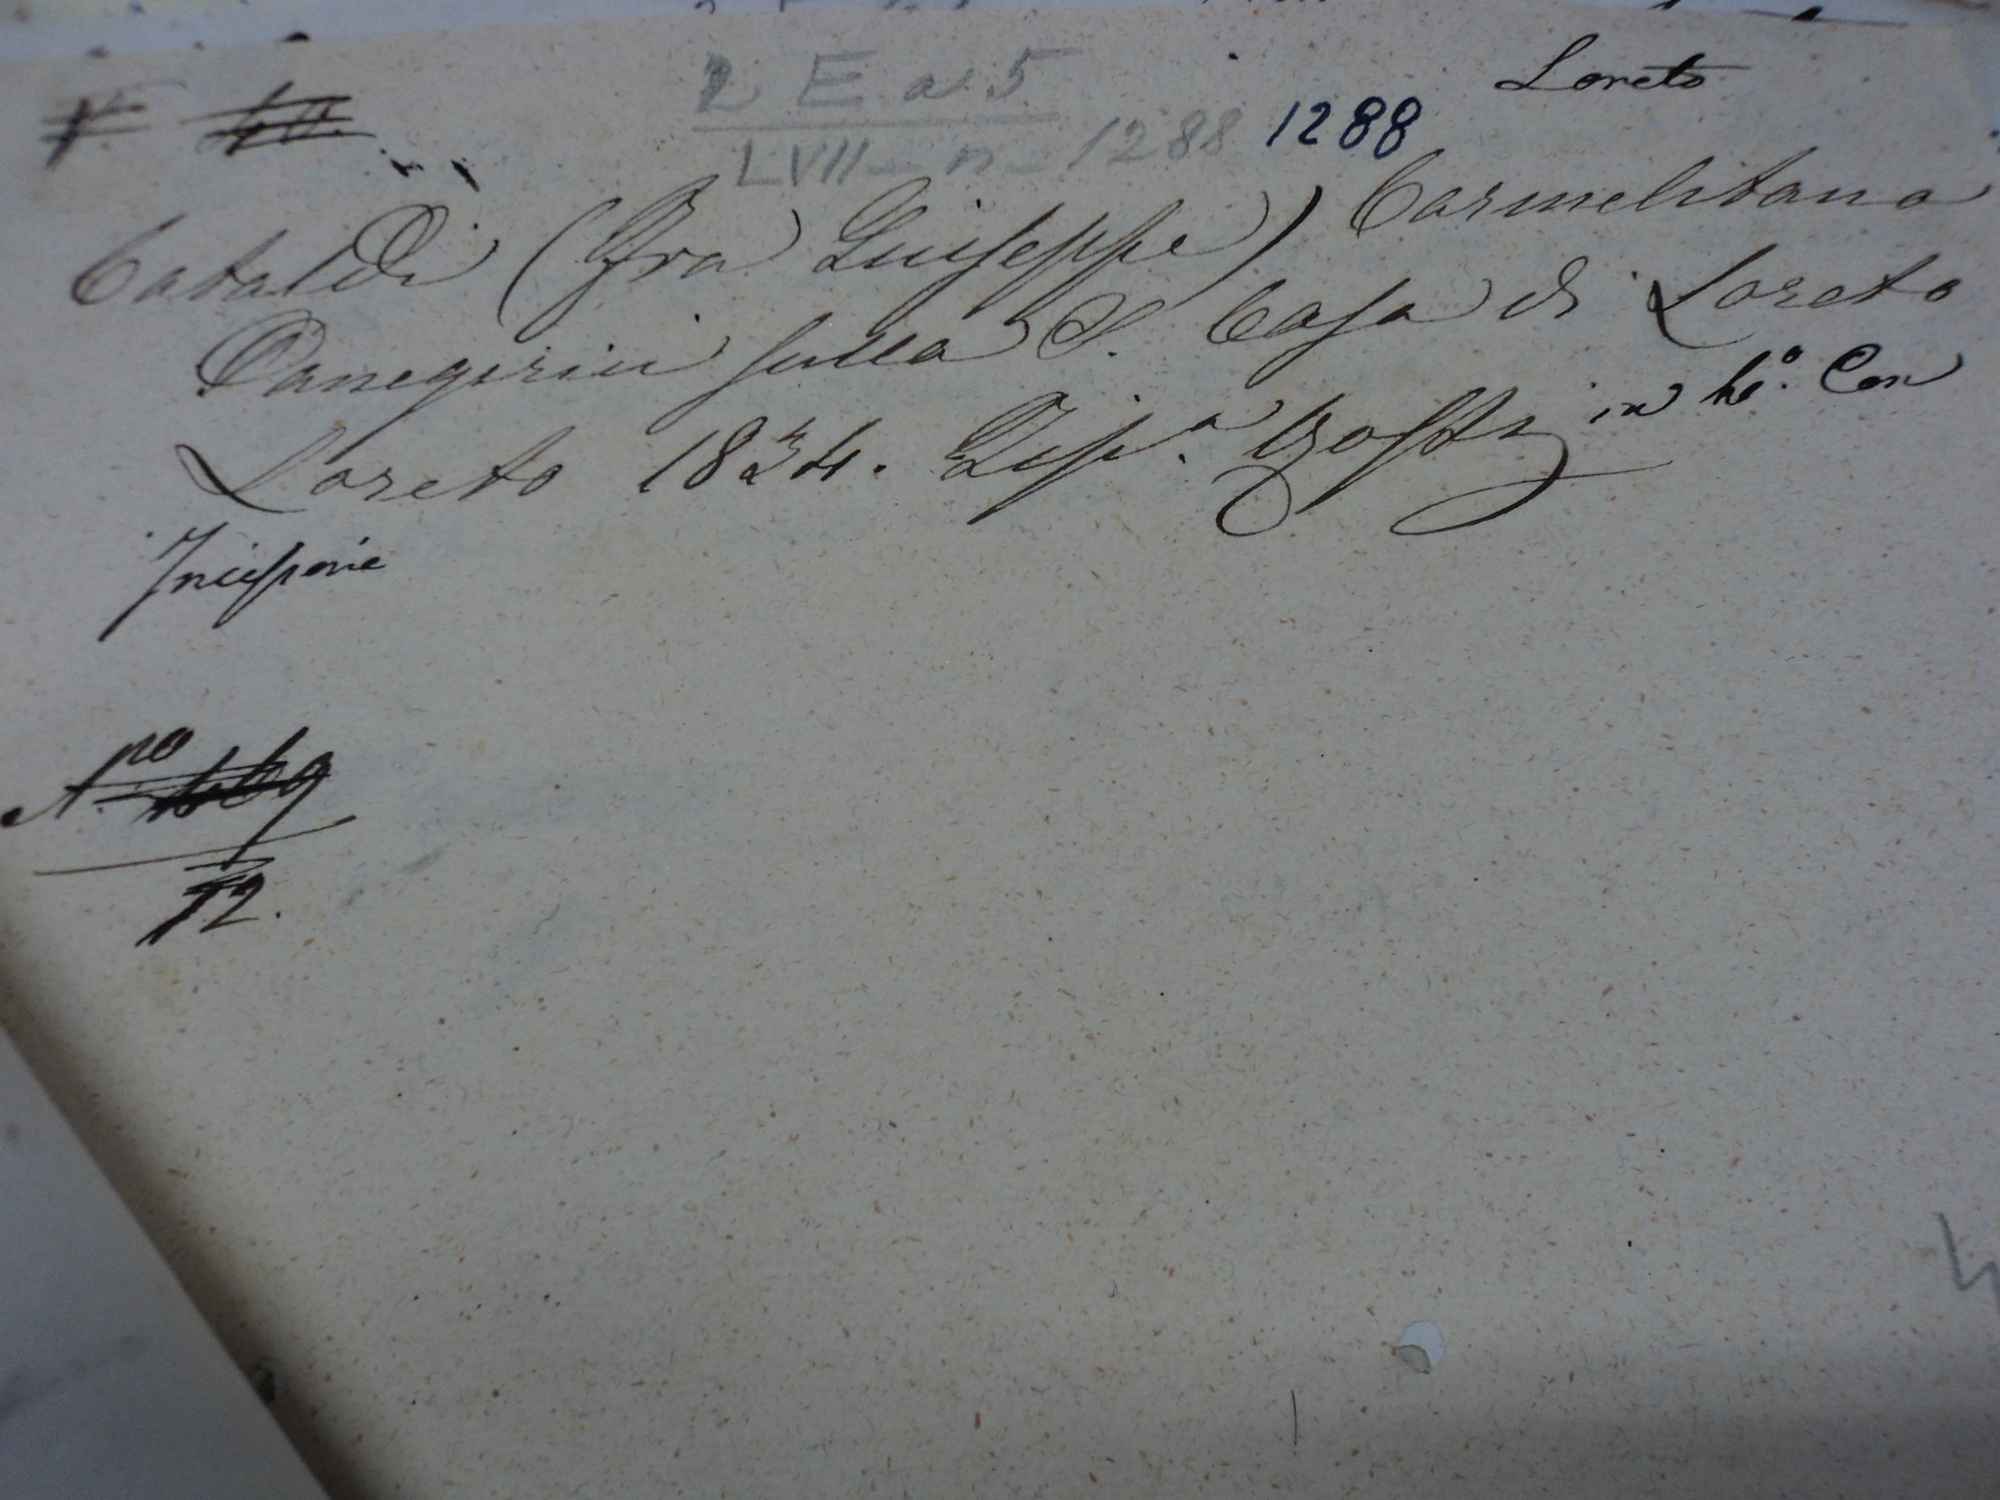 Loreto
2 E a 5
LVII - n - 1288 1288
Cataldi (Fra Giuseppe) Carmelitano
Panegirici sulla S. Casa di Loreto
Loreto 1834. Tip.a Rossi in 4°. Con
Incisione
N.ro
72.